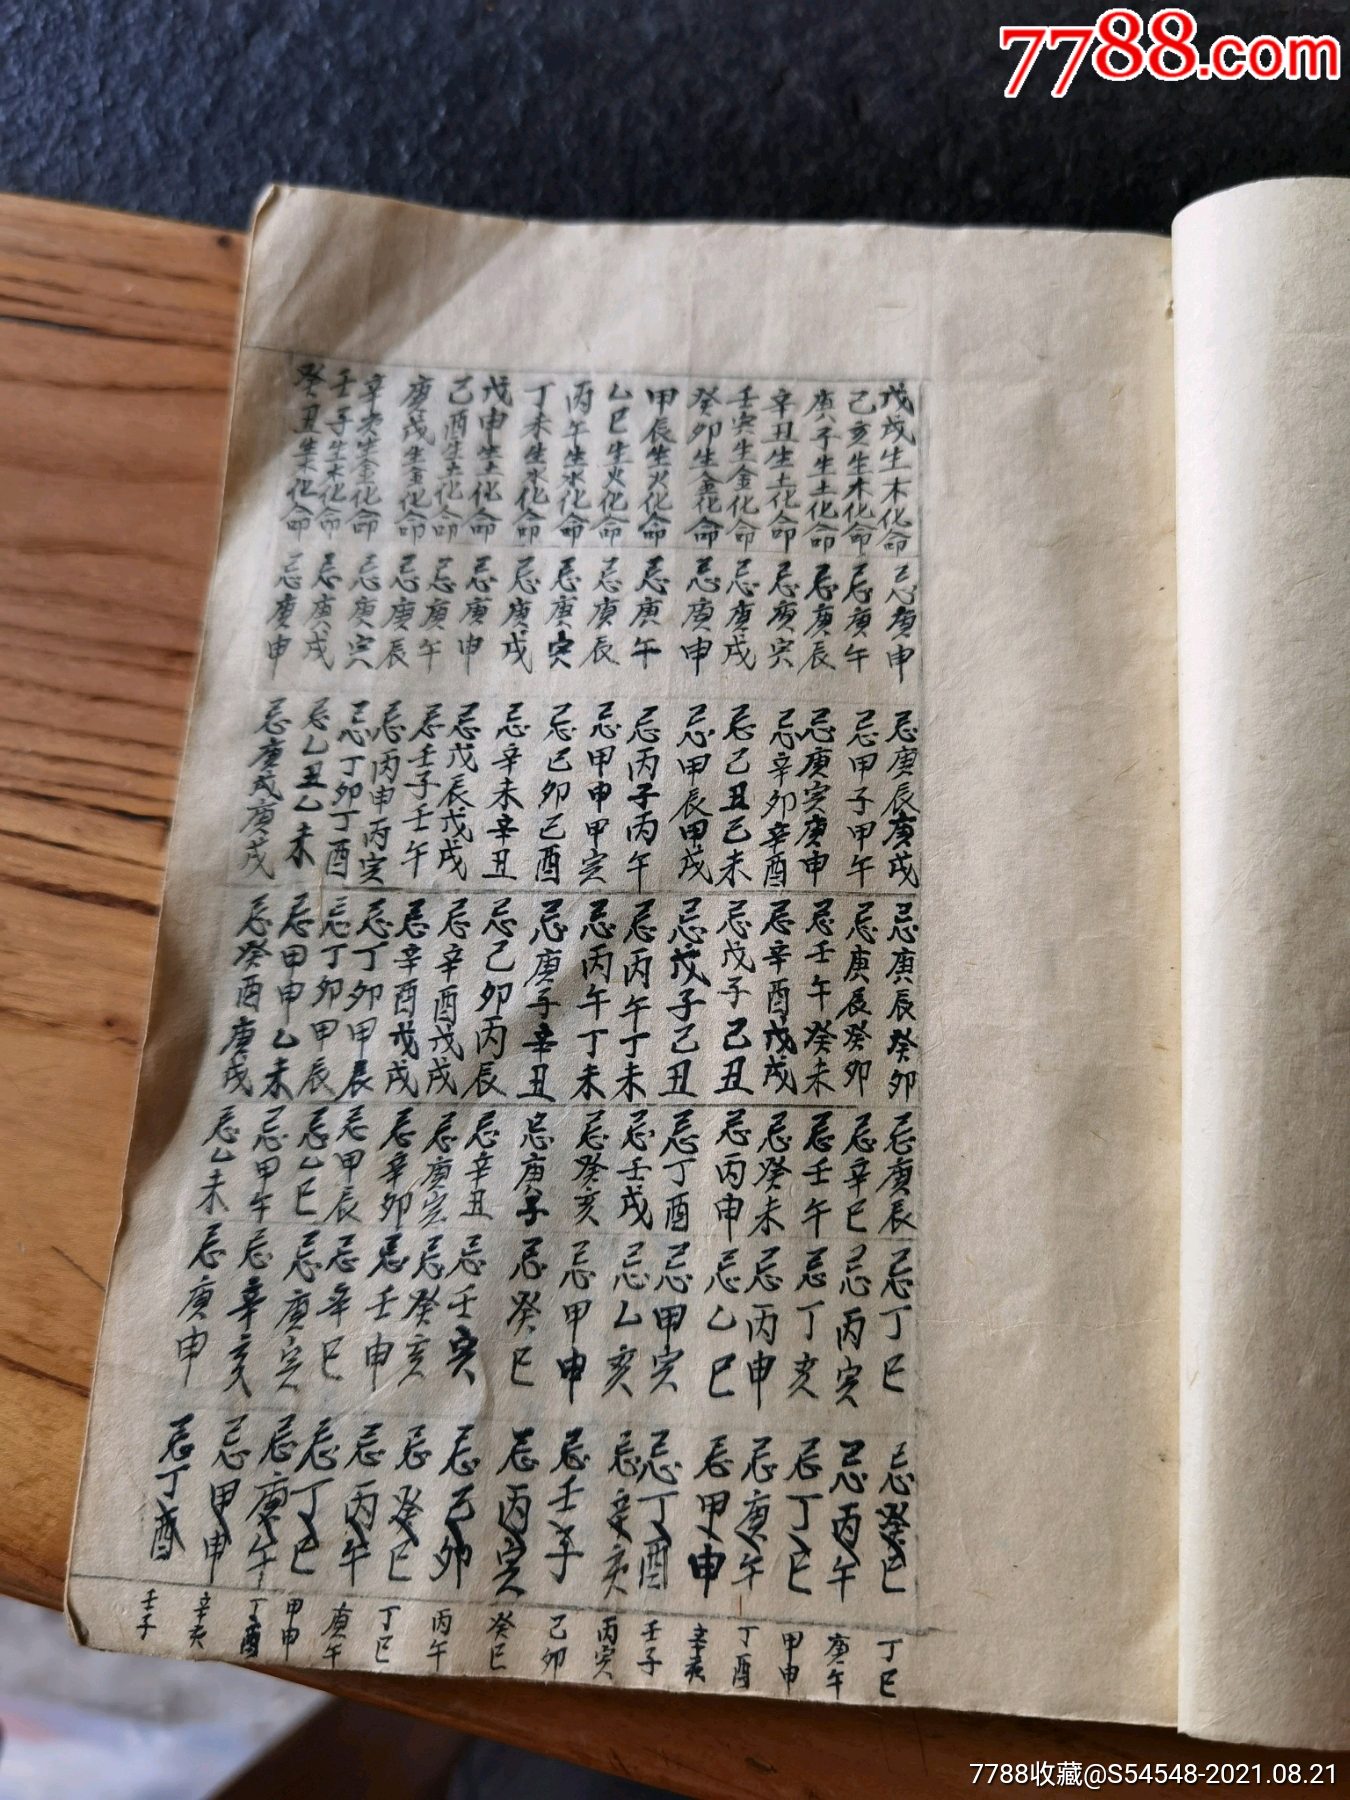 7788.com
戊戌生木化命 忌庚申 忌庚辰庚戌 忌庚辰癸卯 忌庚辰 忌丁巳 忌癸巳 丁巳
己亥生木化命 忌庚午 忌甲子甲午 忌庚辰癸卯 忌辛巳 忌丙寅 忌丙午 庚午
庚子生土化命 忌庚辰 忌庚寅庚申 忌壬午癸未 忌壬午 忌丁亥 忌丁巳 甲申
辛丑生土化命 忌庚寅 忌辛卯辛酉 忌辛酉戊戌 忌癸未 忌丙申 忌庚午 丁酉
壬寅生金化命 忌庚戌 忌己丑己未 忌戊子己丑 忌丙申 忌乙巳 忌甲申 辛亥
癸卯生金化命 忌庚申 忌甲辰甲戌 忌戊子己丑 忌丁酉 忌甲寅 忌丁酉 壬子
甲辰生火化命 忌庚午 忌丙子丙午 忌丙午丁未 忌壬戌 忌乙亥 忌辛亥 丙寅
乙巳生火化命 忌庚辰 忌甲申甲寅 忌丙午丁未 忌癸亥 忌甲申 忌壬子 己卯
丙午生水化命 忌庚寅 忌己卯己酉 忌庚子辛丑 忌庚子 忌癸巳 忌丙寅 癸巳
丁未生水化命 忌庚戌 忌辛未辛丑 忌己卯丙辰 忌辛丑 忌壬寅 忌己卯 丙午
戊申生土化命 忌庚申 忌戊辰戊戌 忌辛酉戊戌 忌庚寅 忌癸亥 忌癸巳 丁巳
己酉生土化命 忌庚午 忌壬子壬午 忌辛酉戊戌 忌辛卯 忌壬申 忌丙午 庚午
庚戌生金化命 忌庚辰 忌丙申丙寅 忌丁卯甲辰 忌甲辰 忌辛巳 忌丁巳 甲申
辛亥生金化命 忌庚寅 忌丁卯丁酉 忌丁卯甲辰 忌乙巳 忌庚寅 忌庚午 丁酉
壬子生木化命 忌庚戌 忌乙丑乙未 忌甲申乙未 忌甲午 忌辛亥 忌甲申 辛亥
癸丑生木化命 忌庚申 忌庚戌庚戌 忌癸酉庚戌 忌乙未 忌庚申 忌丁酉 壬子
7788收藏@S54548-2021.08.21